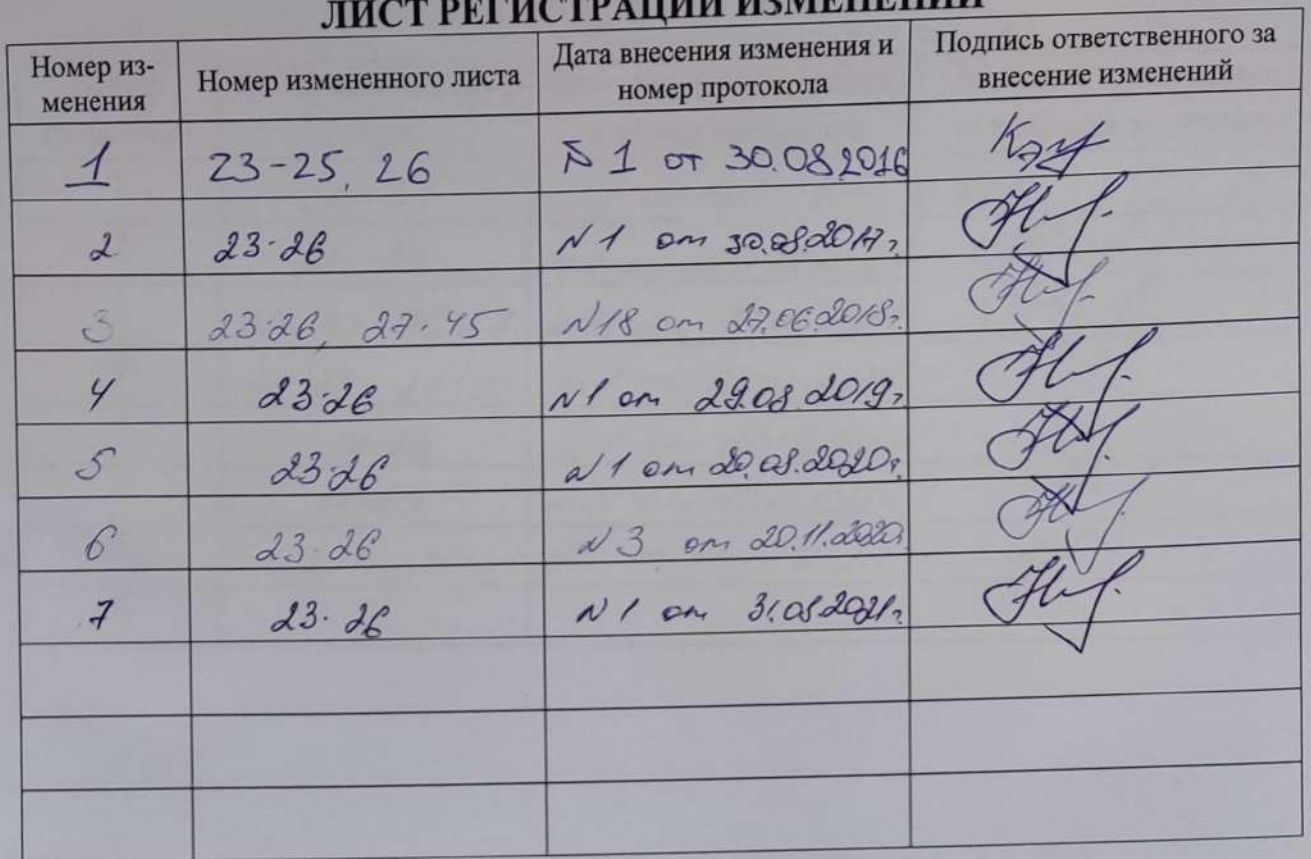 ЛИСТ РЕГИСТРАЦИИ ИЗМЕНЕНИЙ
Номер из-
менения
Номер измененного листа
Дата внесения изменения и
номер протокола
Подпись ответственного за
внесение изменений
1 23-25, 26 № 1 от 30.08.2016
2 23-26 N 1 от 30.08.2017г
3 23-26, 27-45 N18 от 27.06.2018г.
4 23-26 N1 от 29.08.2019г
5 23-26 N1 от 20.08.2020г
6 23-26 N 3 от 20.11.2020
7 23-26 N 1 от 31.08.2021г